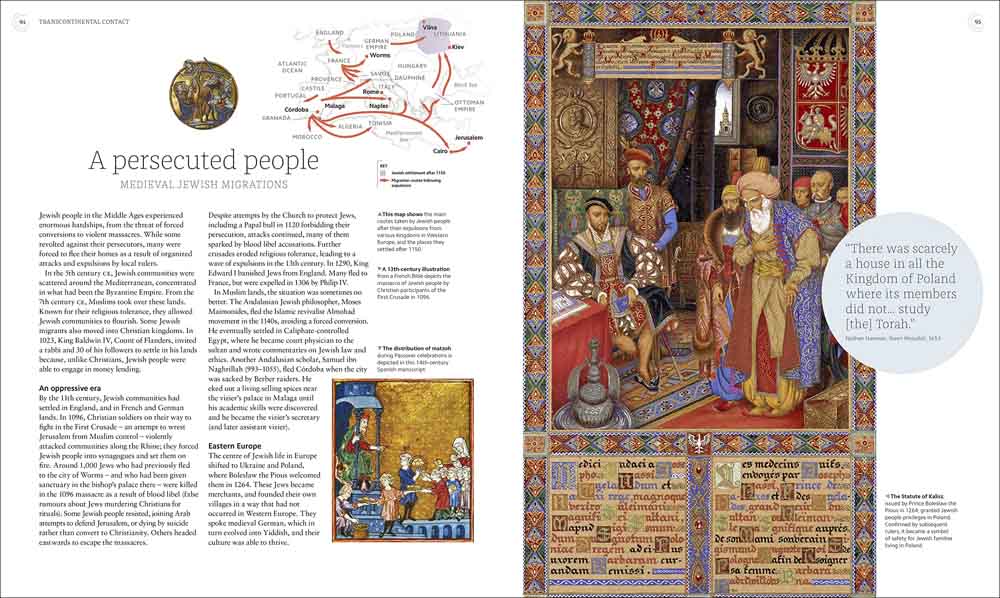 94
TRANSCONTINENTAL CONTACT
ENGLAND
Flanders
GERMAN
EMPIRE
POLAND
Vilna
LITHUANIA
Kiev
Worms
FRANCE
ATLANTIC
OCEAN
HUNGARY
SAVOY
DAUPHINÉ
PROVENCE
ITALY
CASTILE
Rome
Black Sea
PORTUGAL
Córdoba
Malaga
Naples
OTTOMAN
EMPIRE
GRANADA
ALGERIA
TUNISIA
MOROCCO
Mediterranean
Sea
Jerusalem
Cairo
KEY
Jewish settlement after 1150
Migration routes following
expulsions
A persecuted people
MEDIEVAL JEWISH MIGRATIONS
Jewish people in the Middle Ages experienced
enormous hardships, from the threat of forced
conversions to violent massacres. While some
revolted against their persecutors, many were
forced to flee their homes as a result of organized
attacks and expulsions by local rulers.
In the 5th century CE, Jewish communities were
scattered around the Mediterranean, concentrated
in what had been the Byzantine Empire. From the
7th century CE, Muslims took over these lands.
Known for their religious tolerance, they allowed
Jewish communities to flourish. Some Jewish
migrants also moved into Christian kingdoms. In
1023, King Baldwin IV, Count of Flanders, invited
a rabbi and 30 of his followers to settle in his lands
because, unlike Christians, Jewish people were
able to engage in money lending.
An oppressive era
By the 11th century, Jewish communities had
settled in England, and in French and German
lands. In 1096, Christian soldiers on their way to
fight in the First Crusade – an attempt to wrest
Jerusalem from Muslim control – violently
attacked communities along the Rhine; they forced
Jewish people into synagogues and set them on
fire. Around 1,000 Jews who had previously fled
to the city of Worms – and who had been given
sanctuary in the bishop's palace there – were killed
in the 1096 massacre as a result of blood libel (false
rumours about Jews murdering Christians for
rituals). Some Jewish people resisted, joining Arab
attempts to defend Jerusalem, or dying by suicide
rather than convert to Christianity. Others headed
eastwards to escape the massacres.
Despite attempts by the Church to protect Jews,
including a Papal bull in 1120 forbidding their
persecution, attacks continued, many of them
sparked by blood libel accusations. Further
crusades eroded religious tolerance, leading to a
wave of expulsions in the 13th century. In 1290, King
Edward I banished Jews from England. Many fled to
France, but were expelled in 1306 by Philip IV.
In Muslim lands, the situation was sometimes no
better. The Andalusian Jewish philosopher, Moses
Maimonides, fled the Islamic revivalist Almohad
movement in the 1140s, avoiding a forced conversion.
He eventually settled in Caliphate-controlled
Egypt, where he became court physician to the
sultan and wrote commentaries on Jewish law and
ethics. Another Andalusian scholar, Samuel ibn
Naghrillah (993–1055), fled Córdoba when the city
was sacked by Berber raiders. He
eked out a living selling spices near
the vizier's palace in Malaga until
his academic skills were discovered
and he became the vizier's secretary
(and later assistant vizier).
Eastern Europe
The centre of Jewish life in Europe
shifted to Ukraine and Poland,
where Bolesław the Pious welcomed
them in 1264. These Jews became
merchants, and founded their own
villages in a way that had not
occurred in Western Europe. They
spoke medieval German, which in
turn evolved into Yiddish, and their
culture was able to thrive.
This map shows the main
routes taken by Jewish people
after their expulsions from
various kingdoms in Western
Europe, and the places they
settled after 1150.
A 13th-century illustration
from a French Bible depicts the
massacre of Jewish people by
Christian participants of the
First Crusade in 1096.
The distribution of matzoh
during Passover celebrations is
depicted in this 14th-century
Spanish manuscript.
95
"There was scarcely
a house in all the
Kingdom of Poland
where its members
did not... study
[the] Torah."
Nathan Hannover, Yeven Mezulah, 1653
The Statute of Kalisz,
issued by Prince Bolesław the
Pious in 1264, granted Jewish
people privileges in Poland.
Confirmed by subsequent
rulers, it became a symbol
of safety for Jewish families
living in Poland.